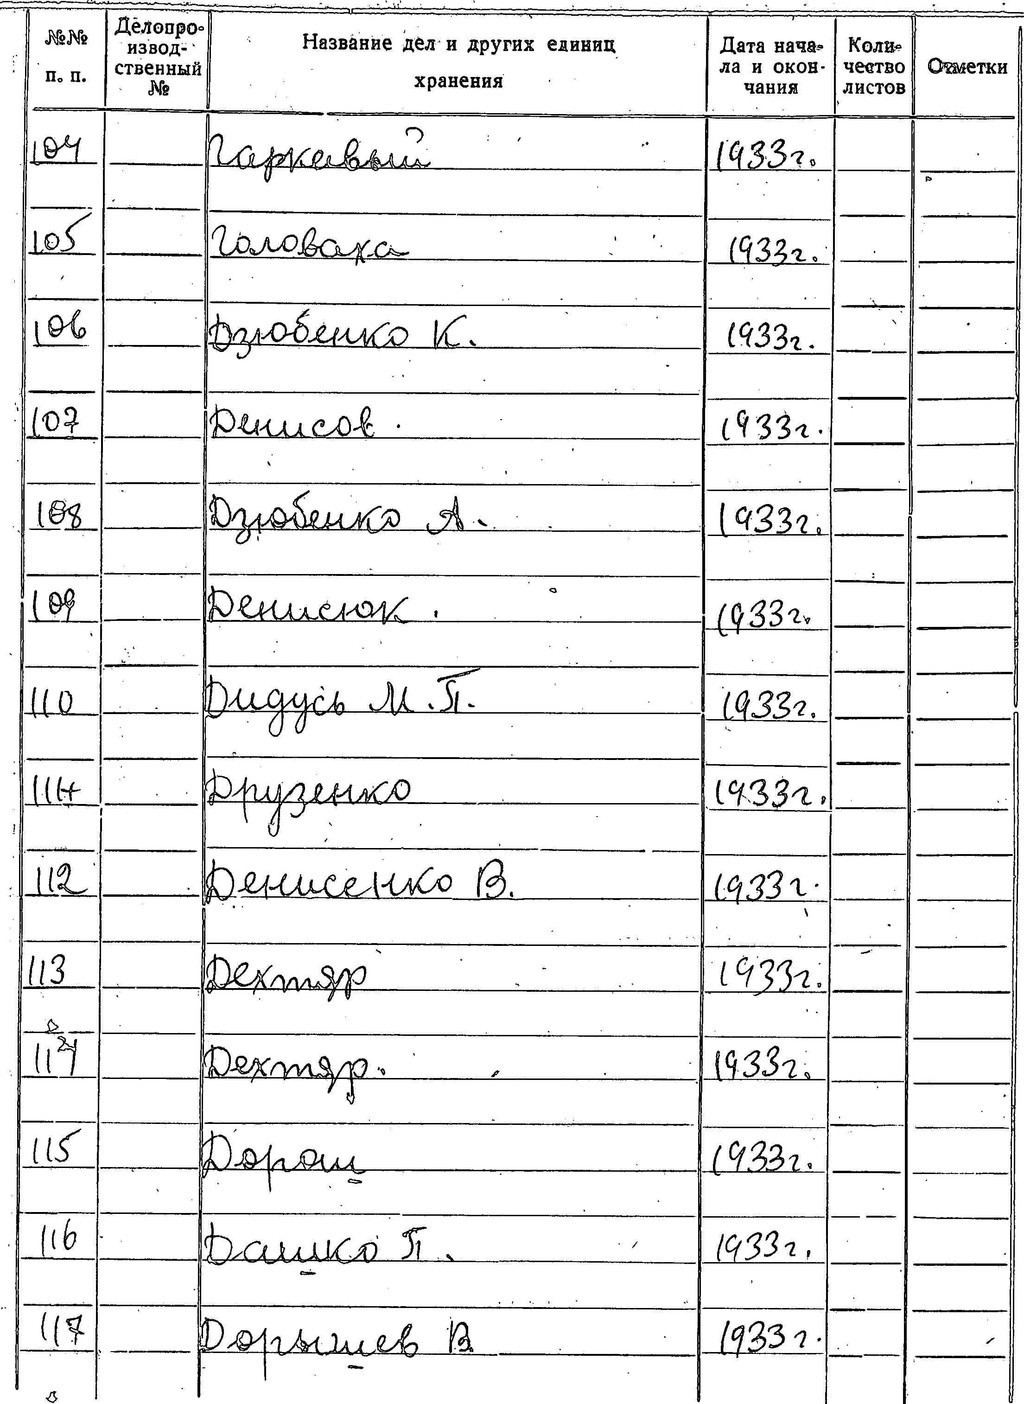 №№ п. п. Делопроизводственный № Название дел и других единиц хранения Дата начала и окончания Количество листов Отметки
104 Гаркавый 1933г.
105 Головаха 1933г.
106 Дзюбенко К. 1933г.
107 Денисов. 1933г.
108 Дзюбенко А. 1933г.
109 Денисюк. 1933г.
110 Дидусь М.П. 1933г.
111 Друзенко 1933г.
112 Денисенко В. 1933г.
113 Дехтяр 1933г.
114 Дехтяр. 1933г.
115 Дорош 1933г.
116 Дашко П. 1933г.
117 Дорышев В. 1933г.